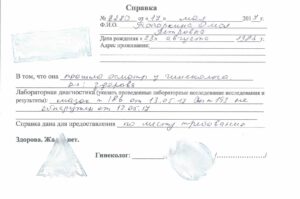 Справка
№ 2280 от 17 мая 2017 г.
Ф.И.О. Топоркина Олеся
Петровна
Дата рождения « 23 » августа 1986 г.
Адрес проживания:
В том, что она прошла осмотр у гинеколога
Здорова
Лабораторная диагностика (указать проведенные лабораторные исследования исследования и
результаты): мазок № 186 от 13.05.17 не
обнаружены 17.05.17
Справка дана для предоставления по месту требования
Здорова. Жалоб нет.
Гинеколог: